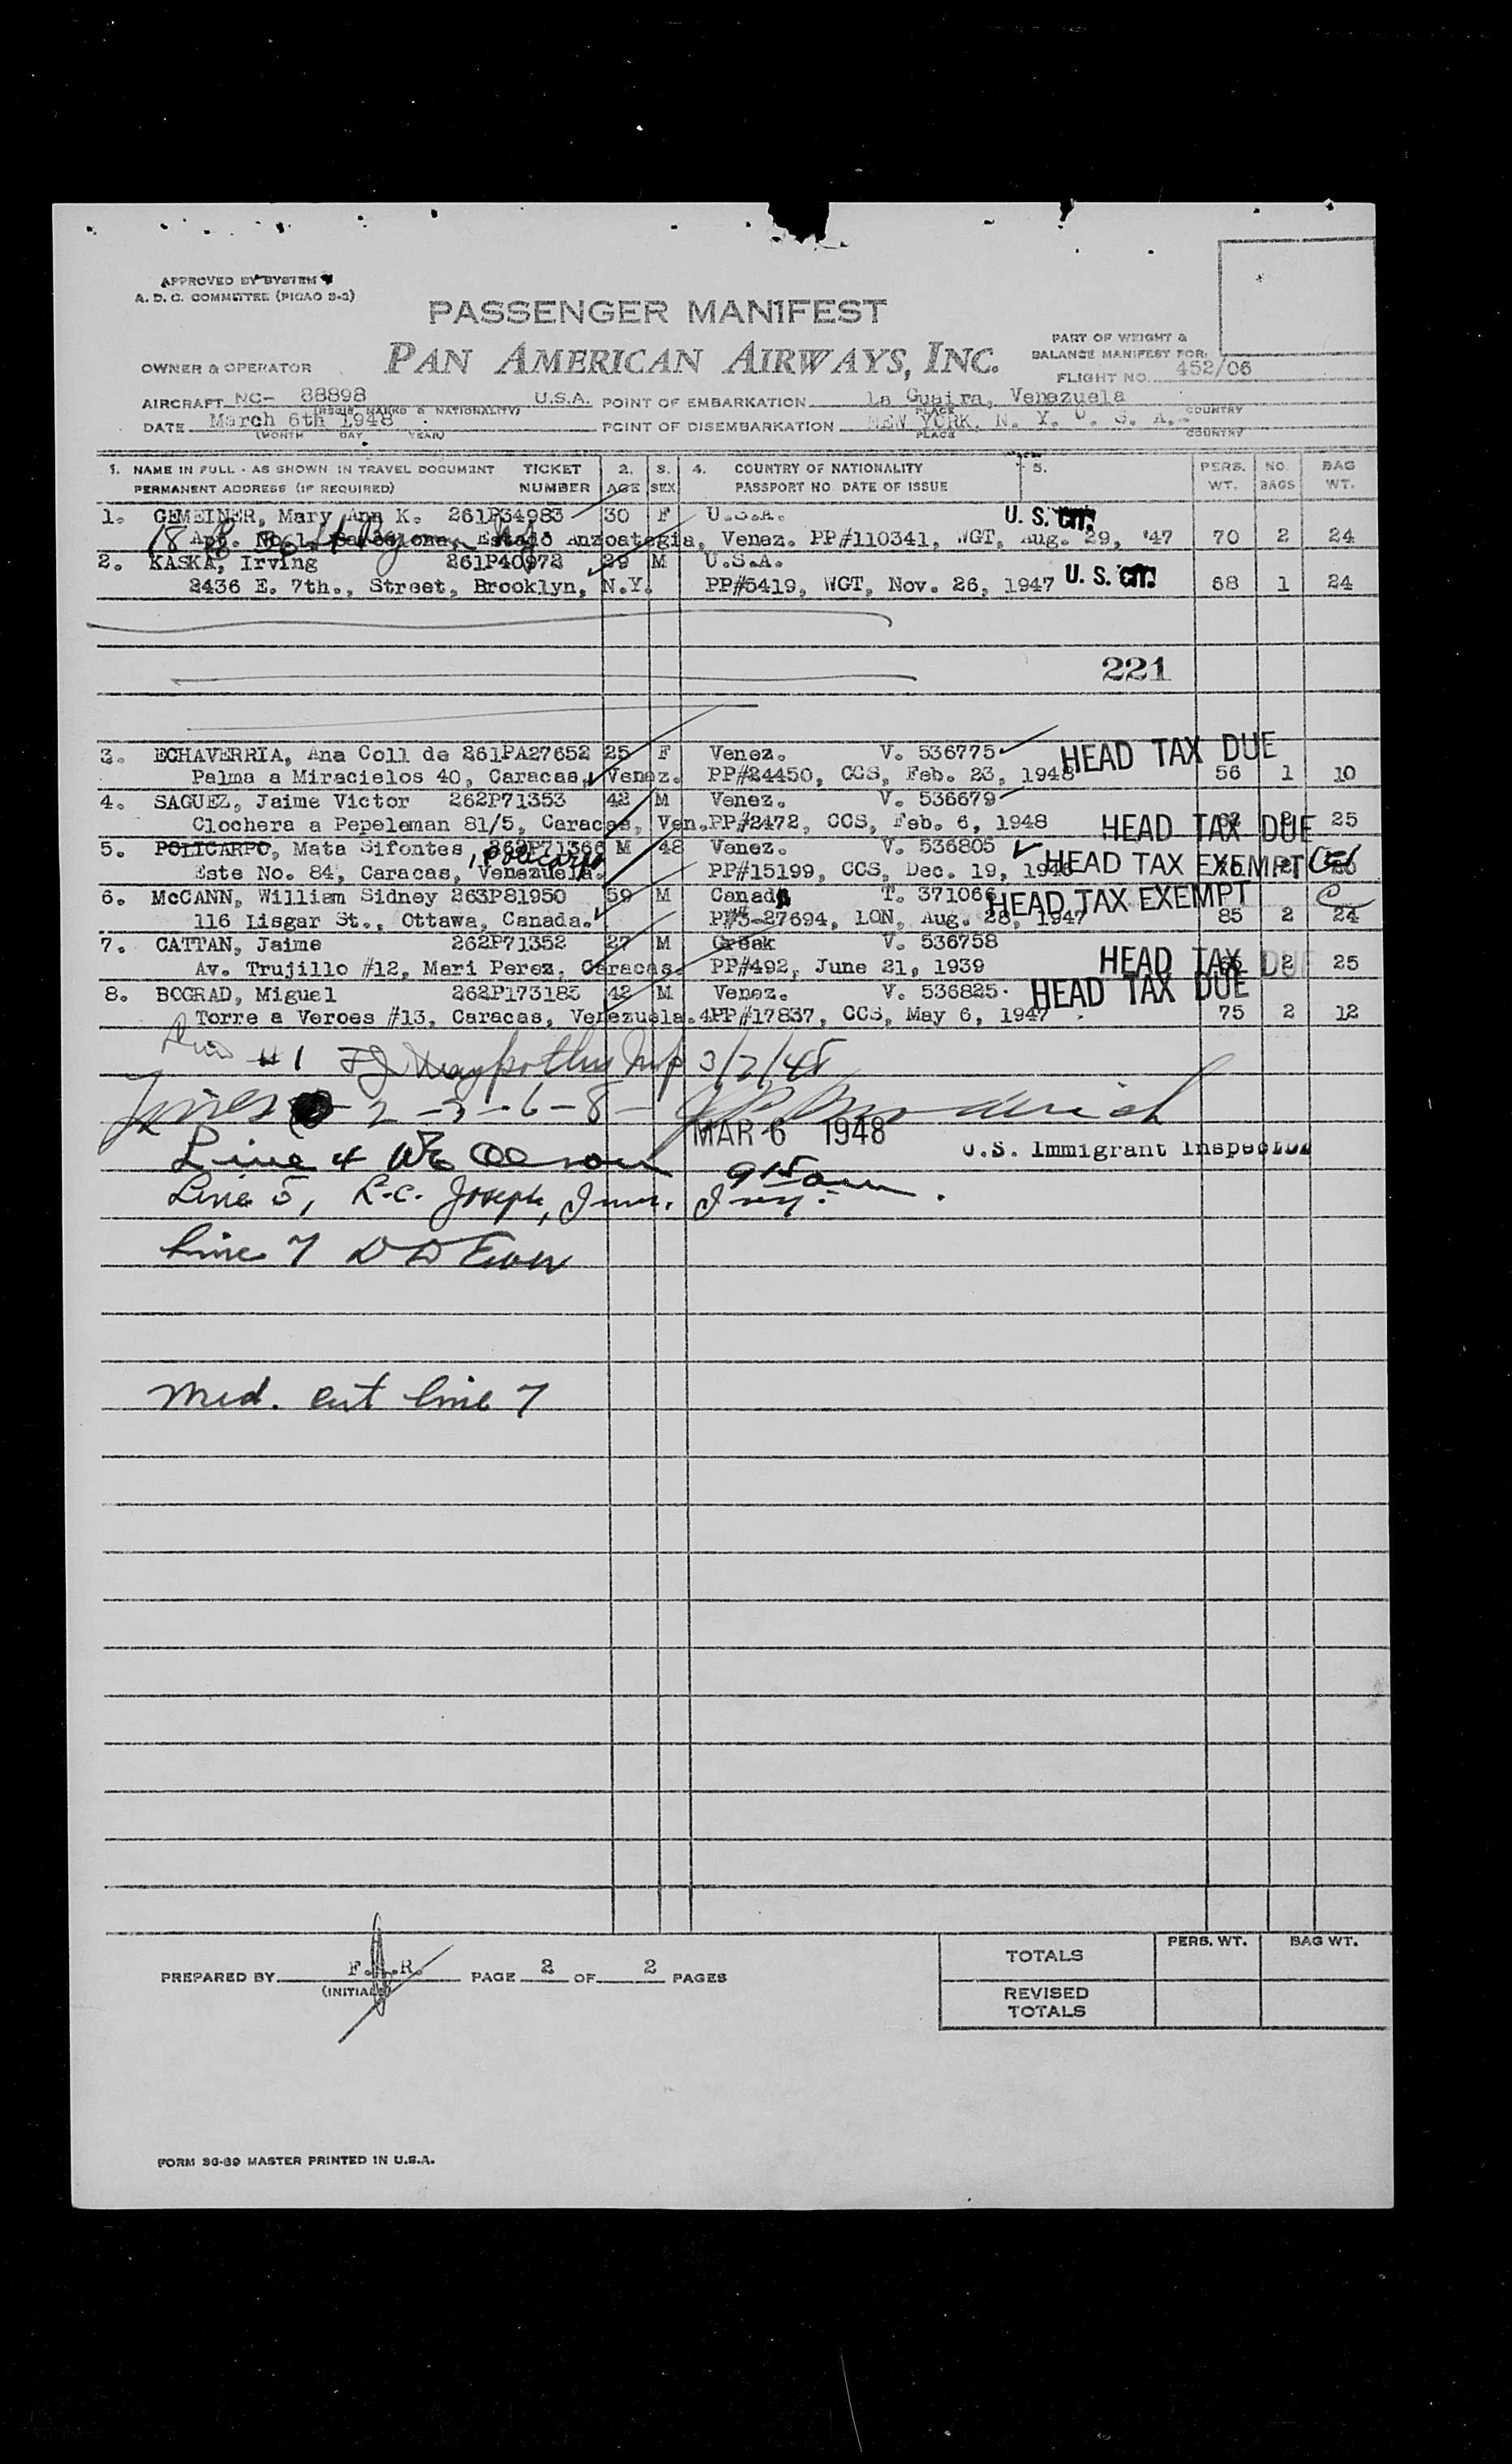 APPROVED BY SYSTEM
A. D. C. COMMITTEE (PICAO S-3)
PASSENGER MANIFEST
PAN AMERICAN AIRWAYS, INC.
OWNER & OPERATOR
PART OF WEIGHT &
BALANCE MANIFEST FOR:
FLIGHT NO. 452/06
AIRCRAFT NC- 88898 U.S.A. POINT OF EMBARKATION La Guaira, Venezuela
(REGIS. MARKS & NATIONALITY) PLACE COUNTRY
DATE March 6th 1948 POINT OF DISEMBARKATION NEW YORK, N. Y. U. S. A.
(MONTH DAY YEAR) PLACE COUNTRY
1. NAME IN FULL - AS SHOWN IN TRAVEL DOCUMENT TICKET 2. 3. 4. COUNTRY OF NATIONALITY 5. PERS. NO. BAG
PERMANENT ADDRESS (IF REQUIRED) NUMBER AGE SEX PASSPORT NO. DATE OF ISSUE WT. BAGS WT.
1. GEMEINER, Mary Ann K. 261P34983 30 F U.S.A. U. S. CIT.
Apt. No. 1, Barcelona, Estado Anzoategia, Venez. PP#110341, WGT, Aug. 29, '47 70 2 24
2. KASKA, Irving 261P40972 29 M U.S.A.
2436 E. 7th., Street, Brooklyn, N.Y. PP#5419, WGT, Nov. 26, 1947 U. S. CIT. 68 1 24
221
3. ECHAVERRIA, Ana Coll de 261PA27652 25 F Venez. V. 536775 HEAD TAX DUE
Palma a Miracielos 40, Caracas, Venez. PP#24450, CCS, Feb. 23, 1948 56 1 10
4. SAGUEZ, Jaime Victor 262P71353 42 M Venez. V. 536679
Clochera a Pepeleman 81/5, Caracas, Ven. PP#2472, CCS, Feb. 6, 1948 HEAD TAX DUE 25
5. POLICARPO, Mata Sifontes, Policarpo 262P71366 M 48 Venez. V. 536805
Este No. 84, Caracas, Venezuela. PP#15199, CCS, Dec. 19, 1946 HEAD TAX EXEMPT
6. McCANN, William Sidney 263P81950 59 M Canada T. 371066 HEAD TAX EXEMPT
116 Lisgar St., Ottawa, Canada. P#3-27694, LON, Aug. 28, 1947 85 2 24
7. CATTAN, Jaime 262P71352 27 M Greek V. 536758
Av. Trujillo #12, Mari Perez, Caracas. PP#492, June 21, 1939 HEAD TAX DUE 2 25
8. BOGRAD, Miguel 262P173183 42 M Venez. V. 536825 HEAD TAX DUE
Torre a Veroes #13, Caracas, Venezuela. PP#17837, CCS, May 6, 1947 75 2 12
#1 3/7/48
Lines 2-3-6-8-
MAR 6 1948
U.S. Immigrant Inspector
Line 4
9 15 am
Line 5, R.C. Joseph, Imm. Insp.
Line 7
Med. cert line 7
PREPARED BY F.A.R. PAGE 2 OF 2 PAGES
(INITIALS)
PERS. WT. BAG WT.
TOTALS
REVISED
TOTALS
FORM 36-89 MASTER PRINTED IN U.S.A.